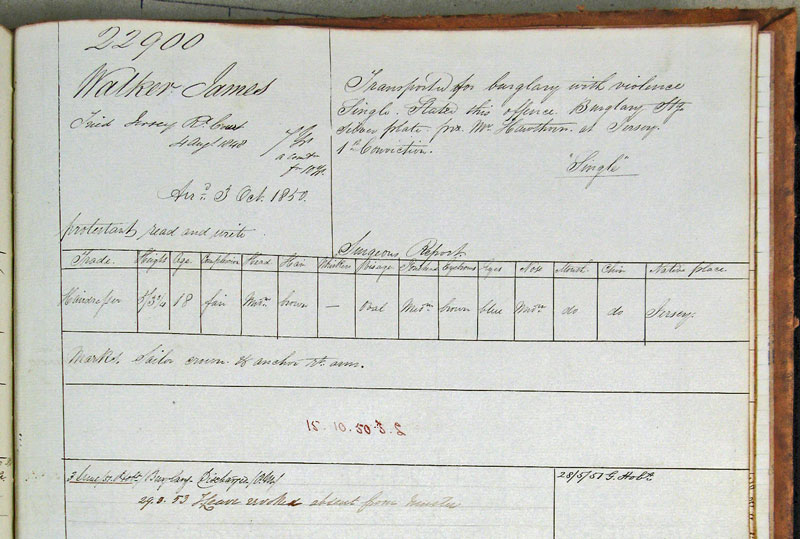 22900
Walker James
Tried Jersey Rl. Court
4 Augt 1848
7 Yrs
Arrd. 3d Oct. 1850.
protestant, read and write
Transported for burglary with violence
Single. States this offence Burglary Stg
Silver plate pros. Mr Hawthorn at Jersey.
1st Conviction.
"Single"
Surgeons Report
Trade. Height Age. Complexion Head Hair Whiskers Visage Forehead Eyebrows Eyes Nose Mouth Chin Native place.
Hairdresser 5/3¾ 18 fair Medm brown — Oval Medm brown blue Medm do do Jersey.
Marks. Sailor crown & anchor rt. arm.
12 .10 .50 .3. 2
Burglary Discharged
28/5/51 G. Hobn
29. 3. 53 Leave revoked absent from muster